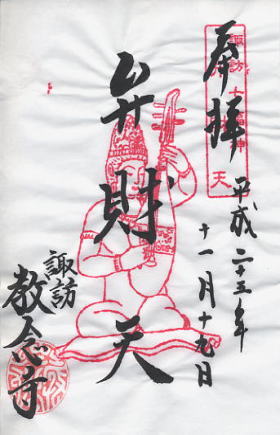 奉拝
諏訪 七福神
天
平成二十三年
十一月十九日
弁財天
諏訪
教念寺